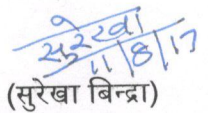 सुरेखा
11/8/17
(सुरेखा बिन्द्रा)